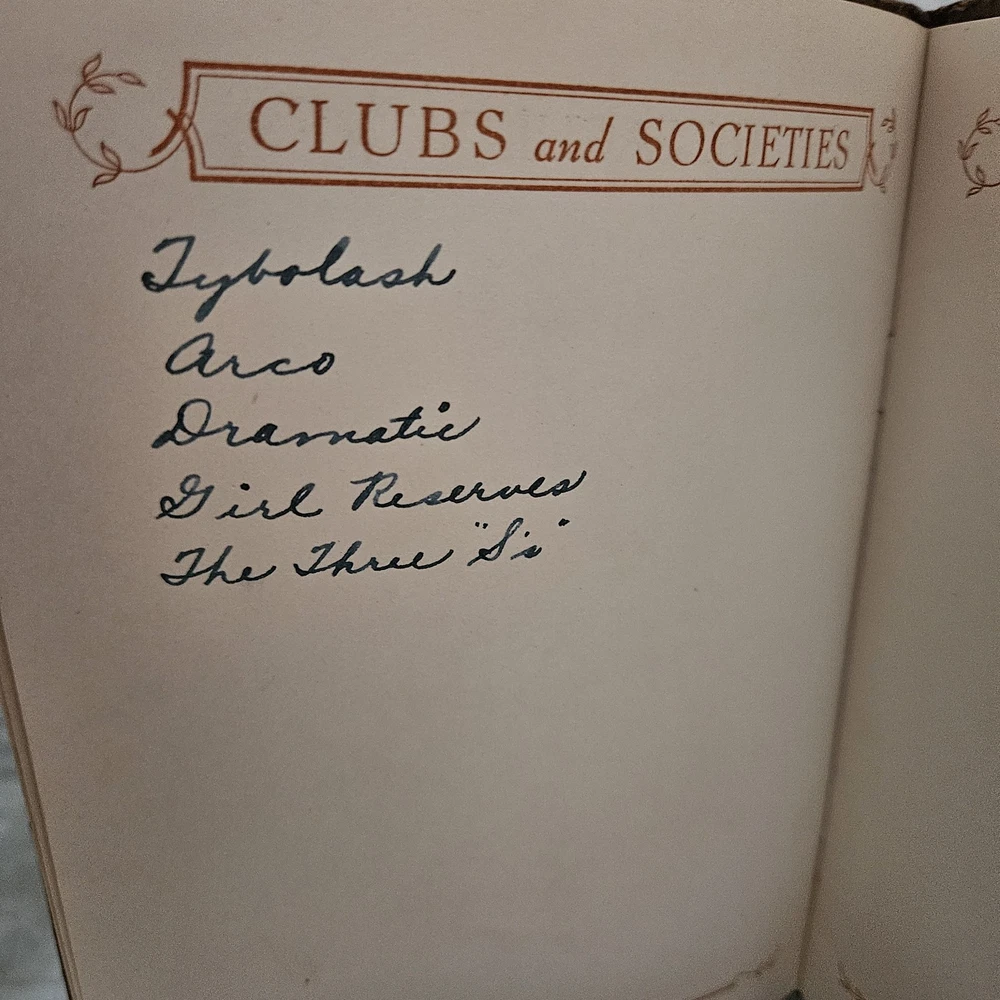 CLUBS and SOCIETIES
Tybolash
Arco
Dramatic
Girl Reserves
The Three "S's"